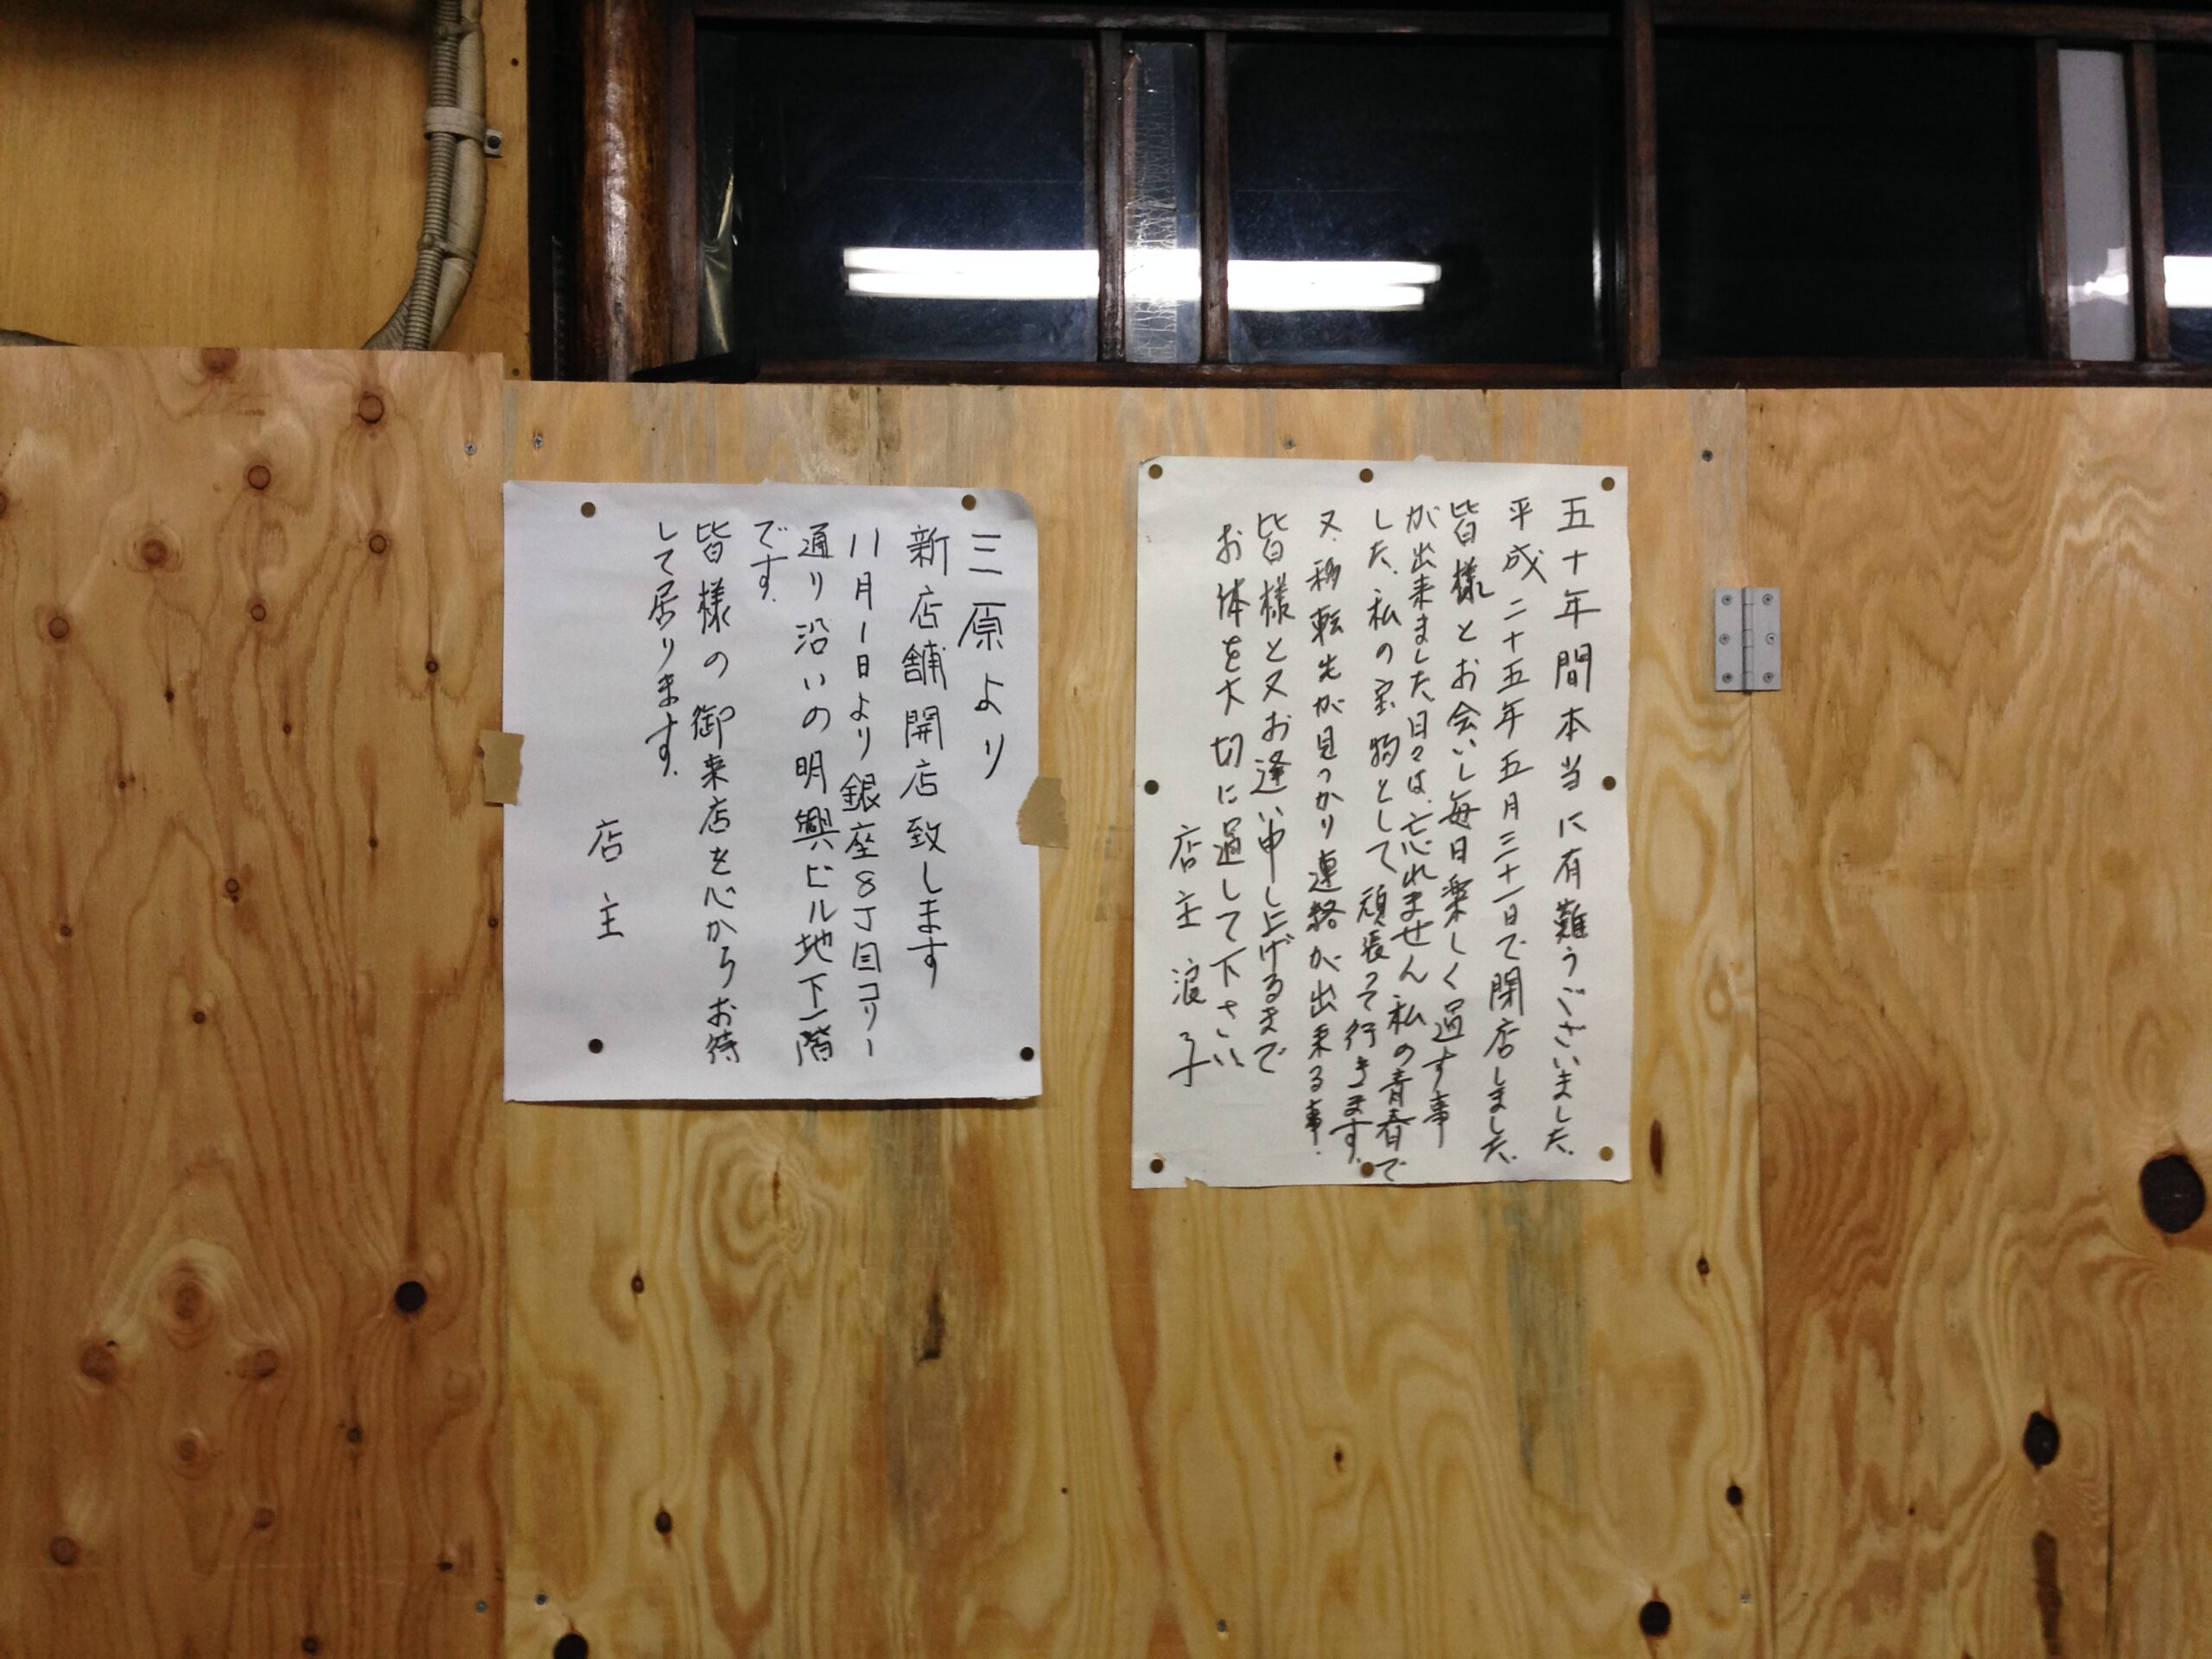 五十年間本当に有難うございました。
平成二十五年五月三十一日で閉店しました。
皆様とお会いし毎日楽しく過す事
が出来ました、日々は、忘れません 私の青春で
した、私の宝物として頑張って行きます。
又、移転先が見つかり連絡が出来る事。
皆様と又お逢い申し上げるまで
お体を大切に過して下さい
店主 浪子
三原より
新店舗開店致します
11月1日より銀座8丁目コリー
通り沿いの明興ビル地下一階
です。
皆様の御来店を心からお待
して居ります。
店主